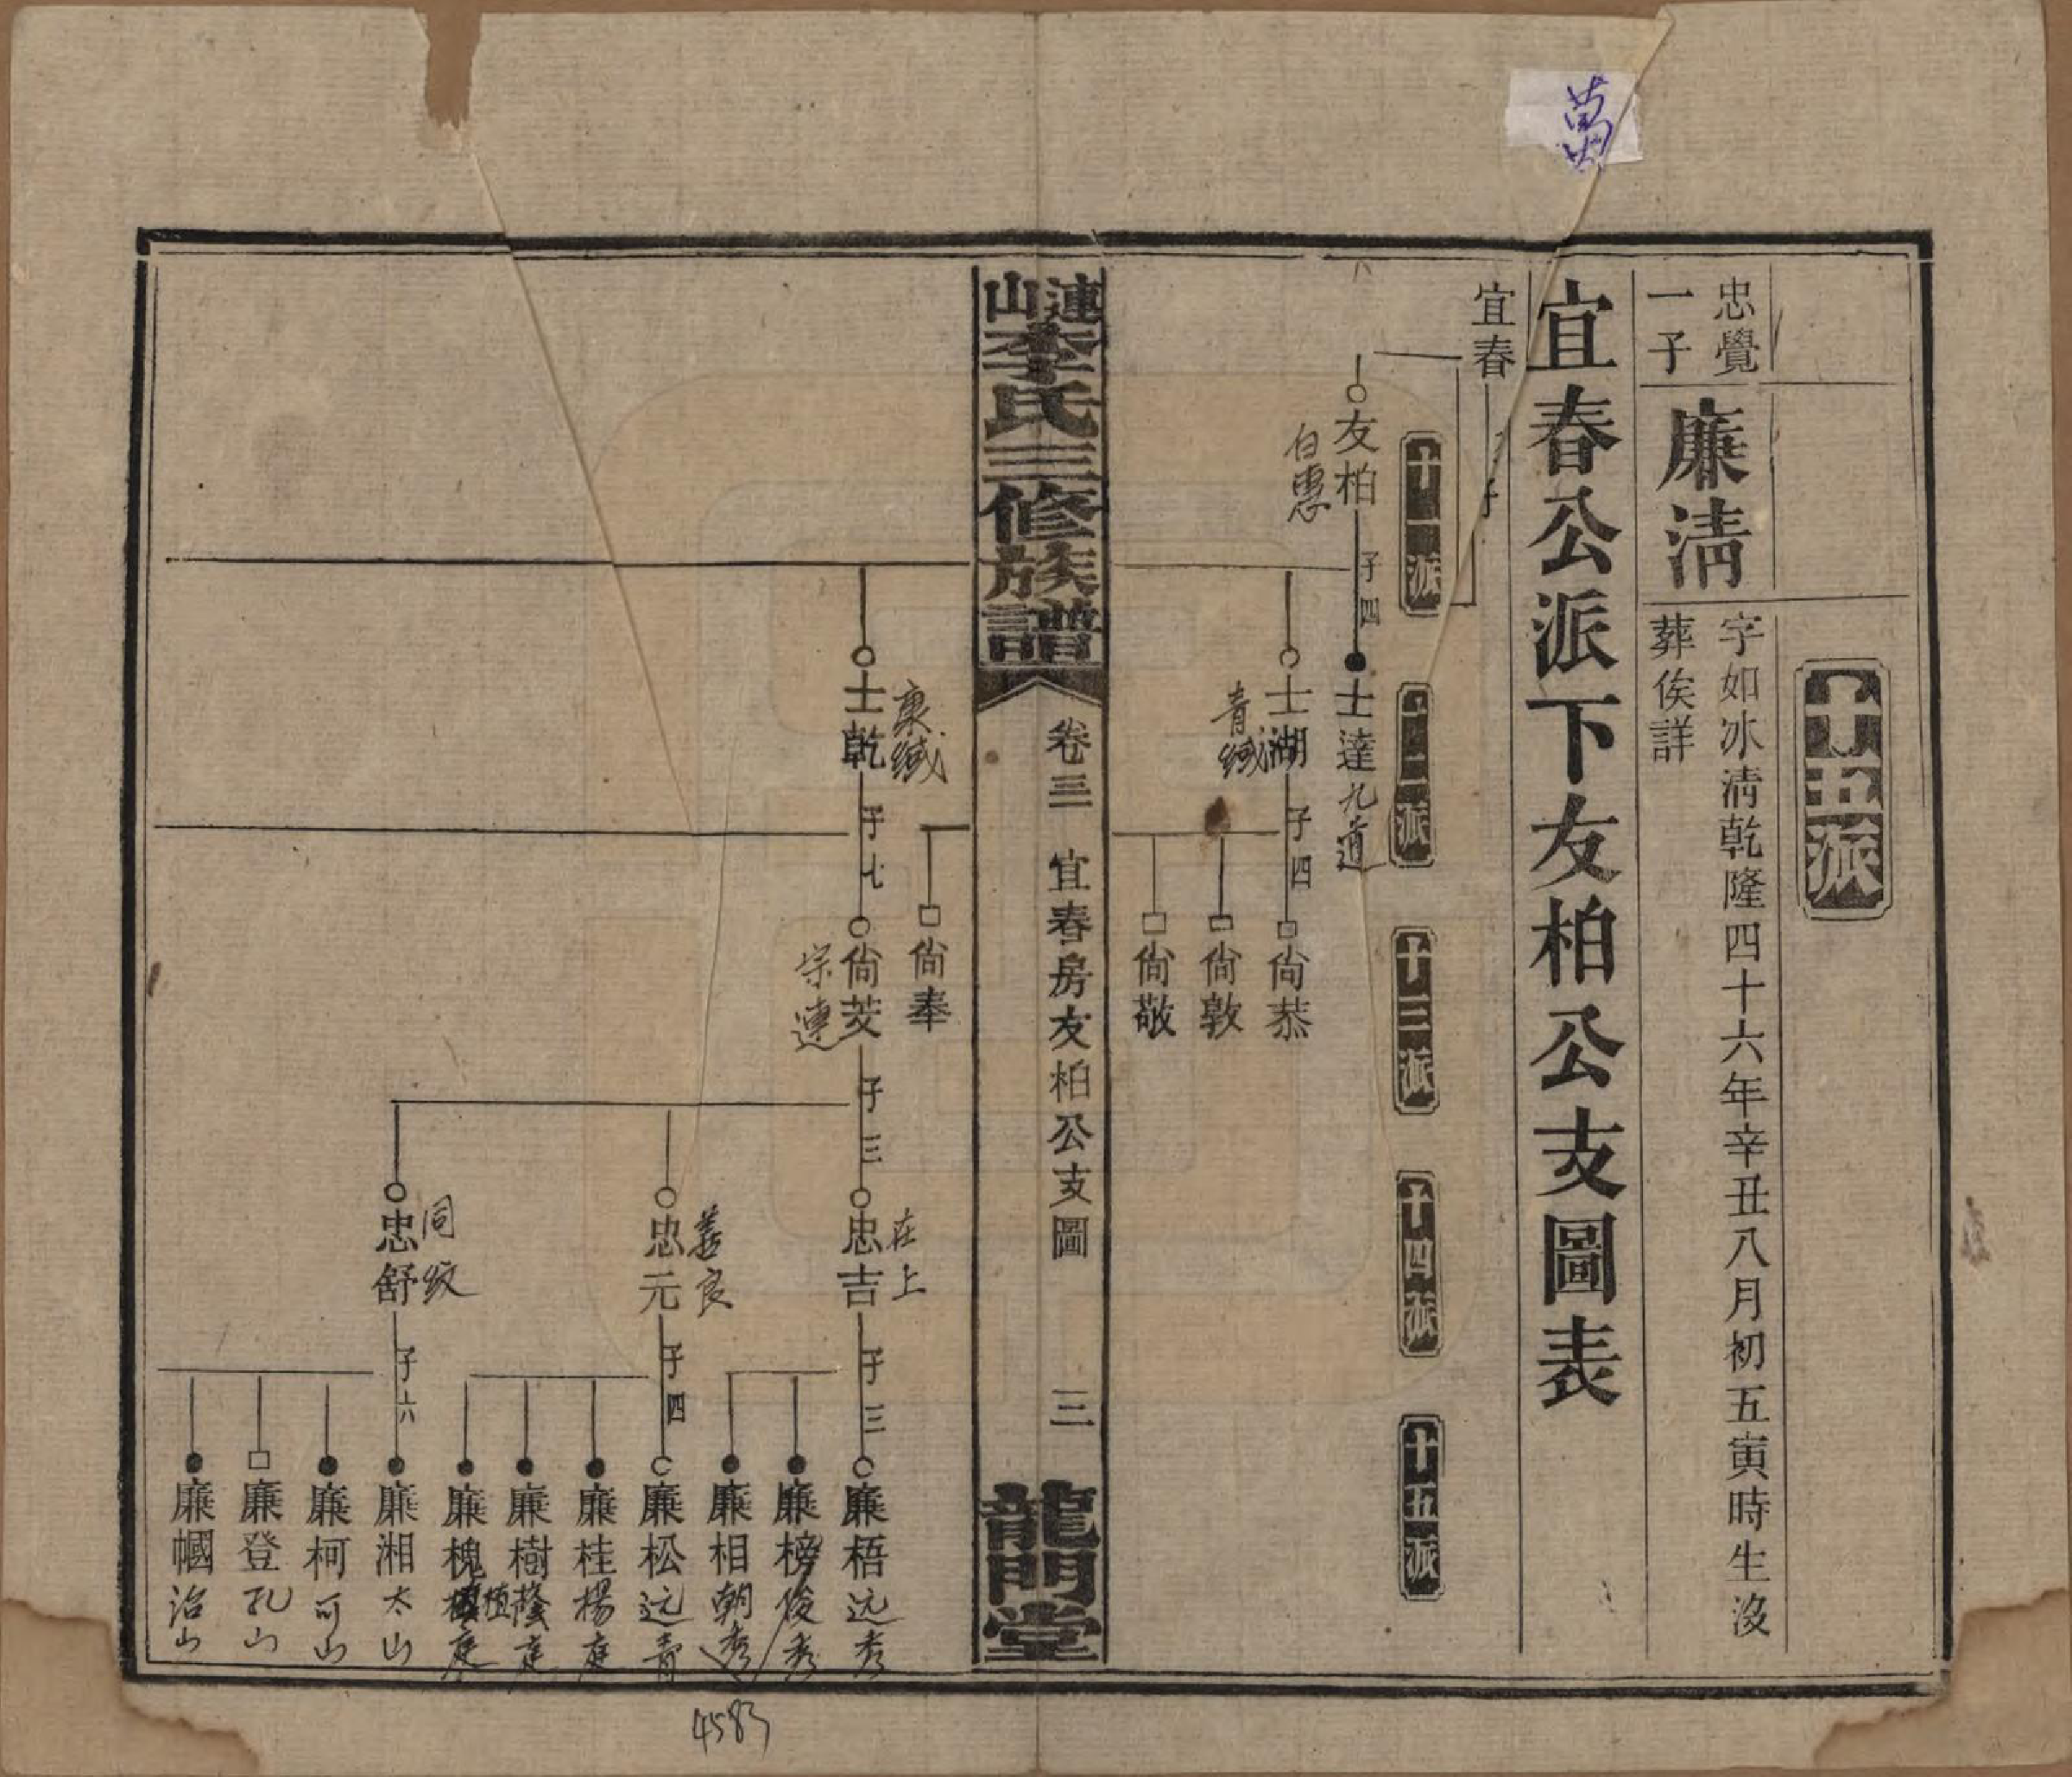 萬
十五派
忠覺
一子
廉淸
字如冰淸乾隆四十六年辛丑八月初五寅時生沒
葬俟詳
宜春公派下友柏公支圖表
宜春
子
十一派
十二派
十三派
十四派
十五派
友柏
子四
士達
九道
士湖
青緘
子四
尙恭
尙敦
尙敬
連山李氏三修族譜
卷三
宜春房友柏公支圖
三
龍門堂
尙奉
士乾
子七
尙茭
子三
忠吉
在上
子三
廉梧
远秀
廉榜
俊秀
廉相
朝秀
忠元
善良
子四
廉松
远青
廉桂
楊庭
廉樹
庭
廉槐
庭
忠舒
同纹
子六
廉湘
太山
廉柯
可山
廉登
孔山
廉幗
治山
4583